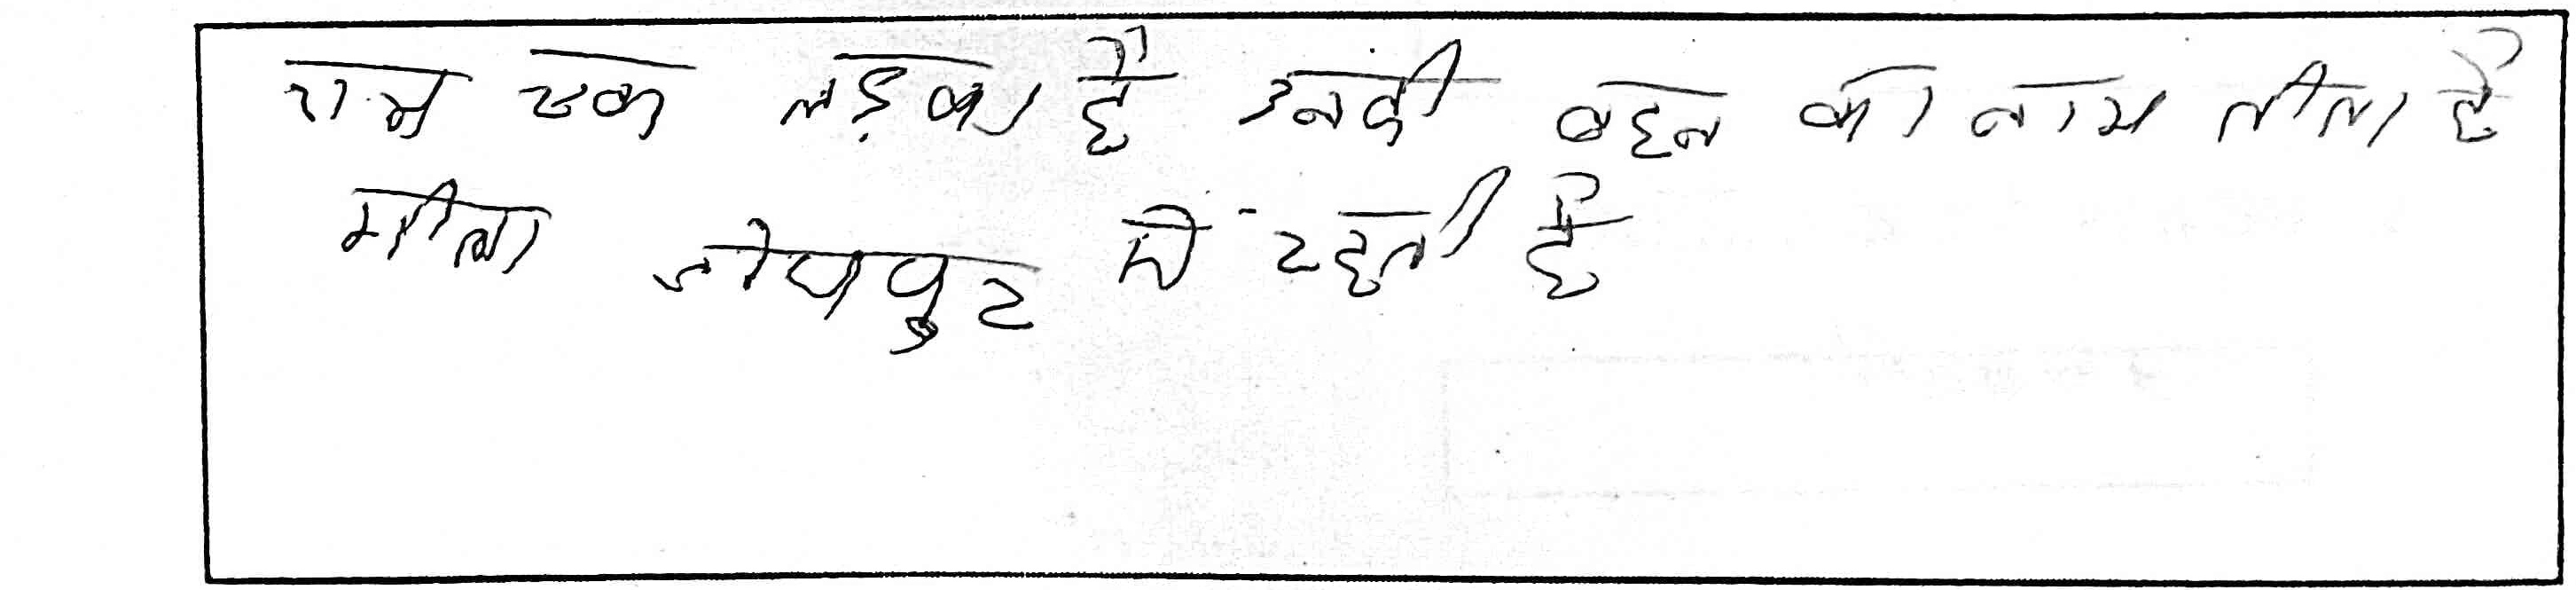 राम एक लड़का है उनकी बहन का नाम लीला है
गीता जोधपुर में रहती है